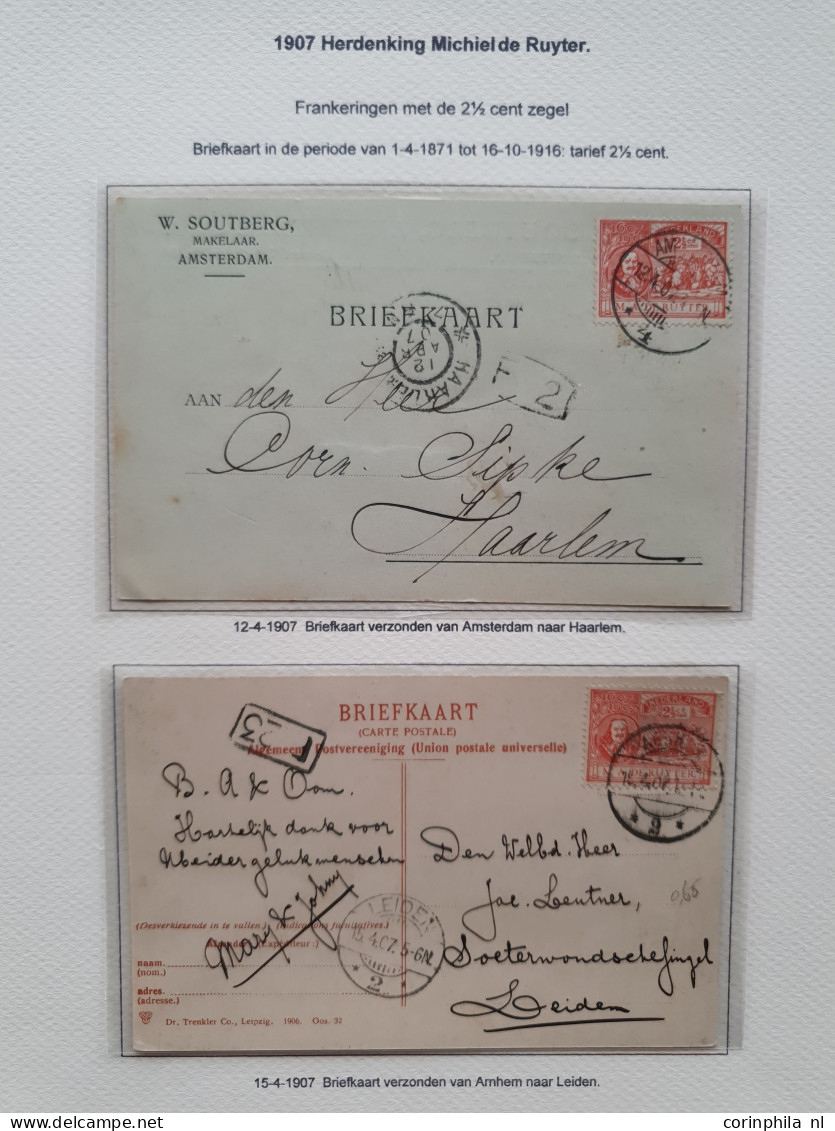 1907 Herdenking Michiel de Ruyter.
Frankeringen met de 2½ cent zegel
Briefkaart in de periode van 1-4-1871 tot 16-10-1916: tarief 2½ cent.
W. SOUTBERG,
MAKELAAR.
AMSTERDAM.
NEDERLAND
BRIEFKAART
HAARLEM
12 APR 07
T 2
AAN den Heer
Corn. Sipke
Haarlem
12-4-1907 Briefkaart verzonden van Amsterdam naar Haarlem.
BRIEFKAART
(CARTE POSTALE)
Algemeene Postvereeniging (Union postale universelle)
NEDERLAND
M. A. DE RUYTER
B. A & Oom.
Hartelijk dank voor
Ulieder gelukmenschen
Mary & Johny
Den Welbd. Heer
Jac. Lentner,
Soeterwondschesingel
Leiden
0,65
(Desverkiezende in te vullen.) (Indications facultatives.)
LEIDEN
15.4.07.5-6N.
2
naam.
(nom.)
adres.
(adresse.)
Dr. Trenkler Co., Leipzig. 1906. Oos. 32
15-4-1907 Briefkaart verzonden van Arnhem naar Leiden.
www.delcampe.net
corinphila nl